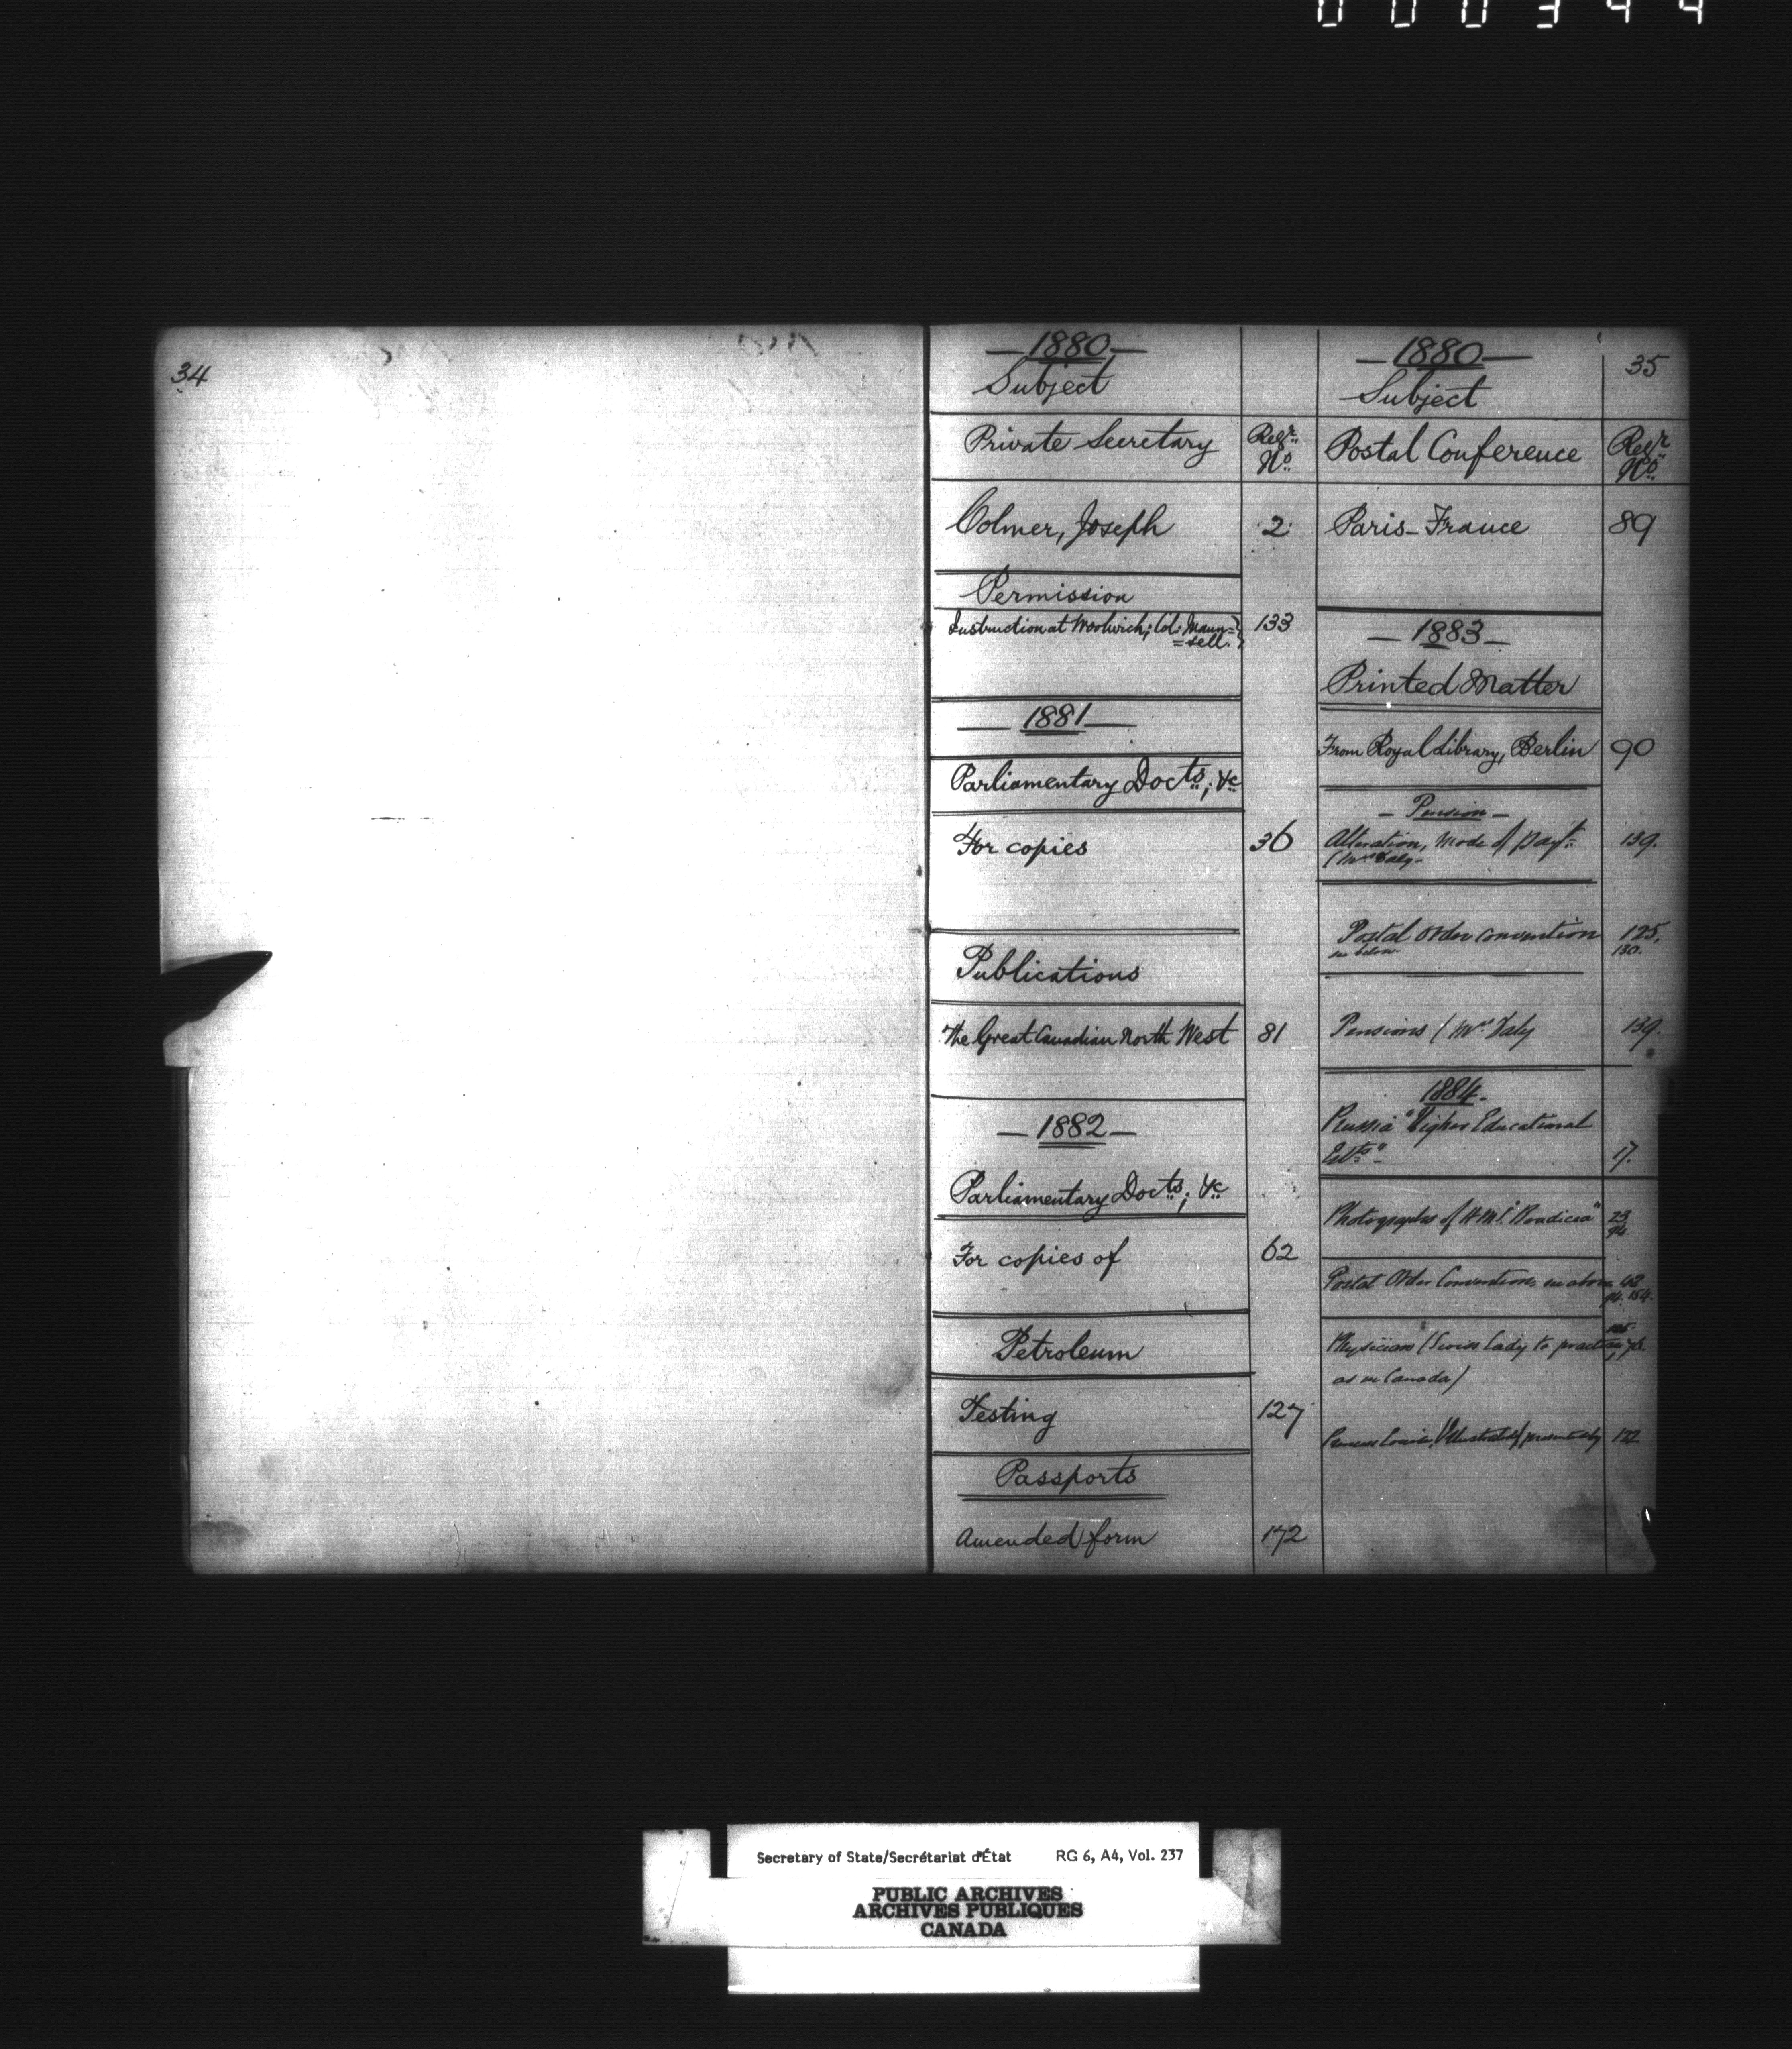 000344
34
— 1880 —
Subject
Private Secretary
Regr. No.
Colmer, Joseph
2
Permission
Instruction at Woolwich; Col: Maun=
=sell.
133
— 1881 —
Parliamentary Docts; &c
For copies
36
Publications
The Great Canadian North West
81
— 1882 —
Parliamentary Docts; &c
For copies of
62
Petroleum
Testing
127
Passports
Amended form
172
— 1880 —
35
Subject
Postal Conference
Regr. No.
Paris - France
89
— 1883 —
Printed Matter
From Royal Library, Berlin
90
— Pension —
Alteration, Mode of Payt.
139.
(Mrs Daly -
Postal Order Convention
125.
see below
130.
Pensions (Mrs Daly
139.
1884.
Prussia "Higher Educational
Estts" -
17.
Photographs of H.M.S. "Boadicea"
23
94
Postal Order Convention, see above
42
94. 154.
Physicians (Swiss Lady to practise
as in Canada)
Princess Louise,
122
Secretary of State/Secrétariat d'État
RG 6, A4, Vol. 237
PUBLIC ARCHIVES
ARCHIVES PUBLIQUES
CANADA